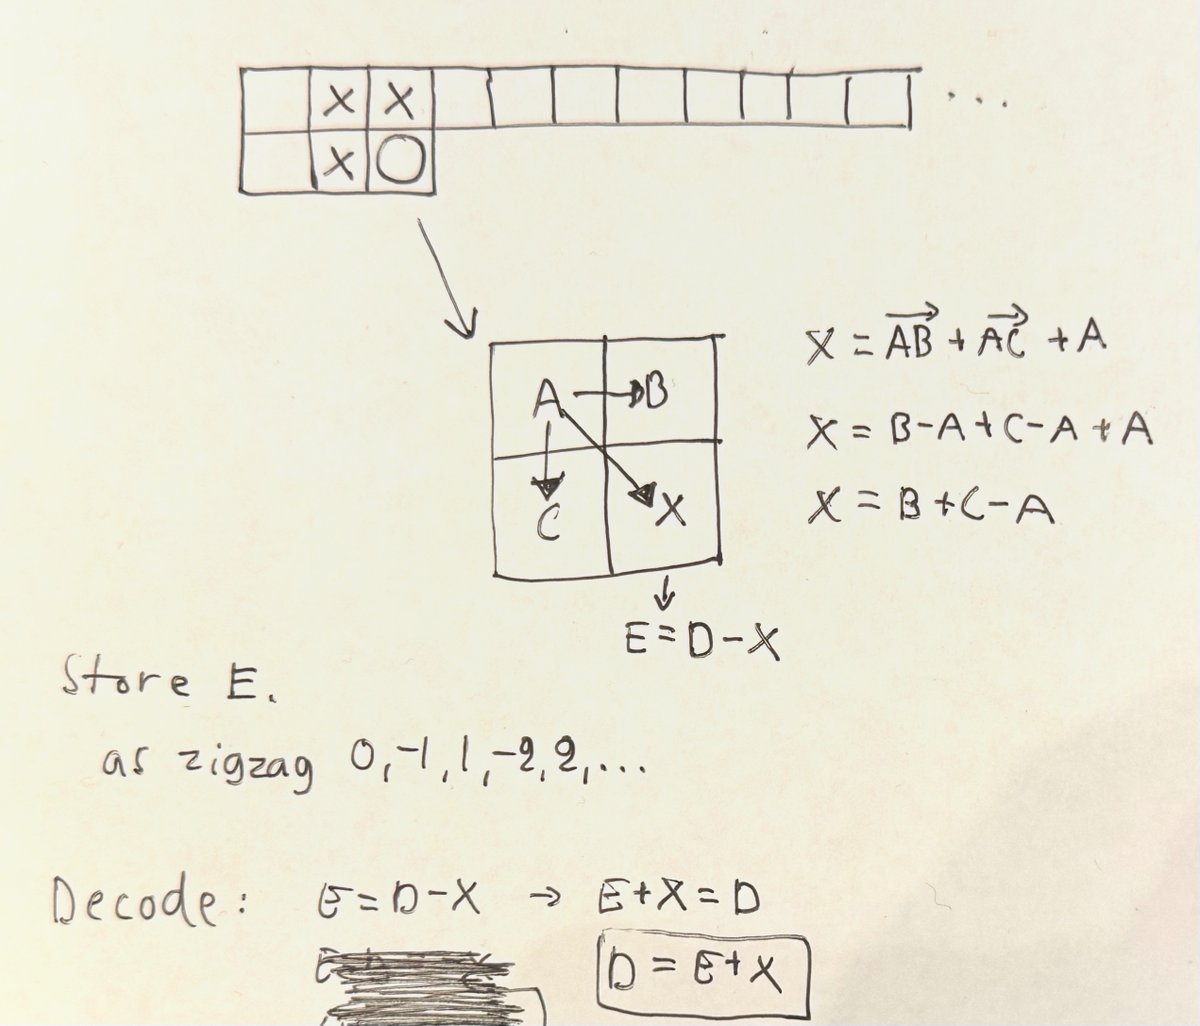 X X
X O
...
A B
C X
X = AB + AC + A
X = B - A + C - A + A
X = B + C - A
E = D - X
Store E.
as zigzag 0, -1, 1, -2, 2, ...
Decode: E = D - X → E + X = D
D = E + X